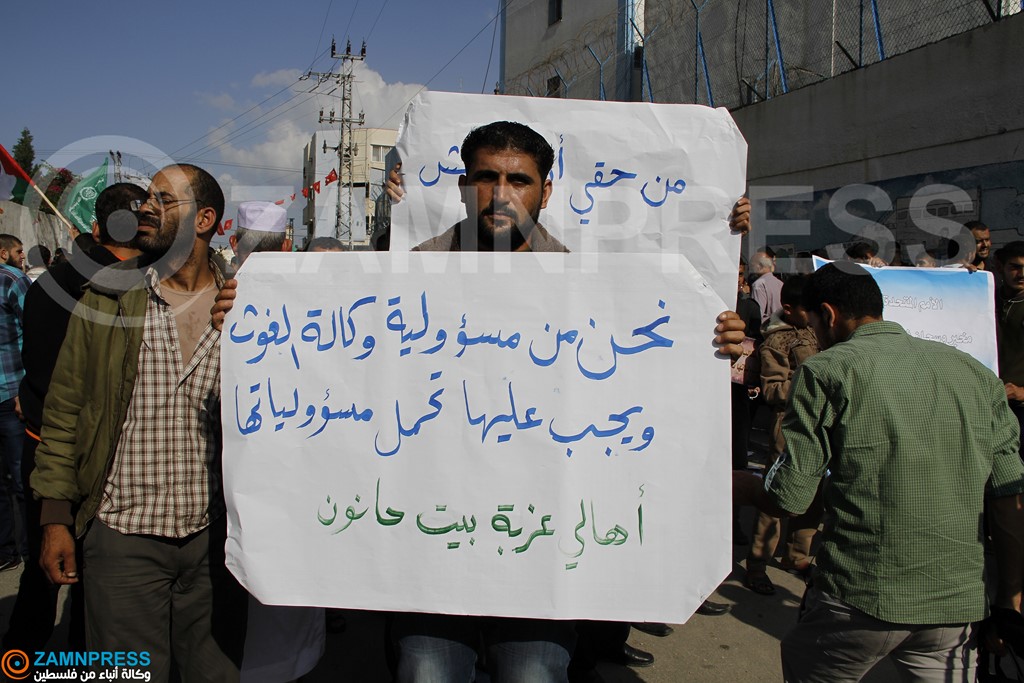 من حقي أن
نحن من مسؤولية وكالة الغوث
ويجب عليها تحمل مسؤولياتها
أهالي عزبة بيت حانون
الأمم المتحدة
ZAMNPRESS
ZAMNPRESS
وكالة أنباء من فلسطين